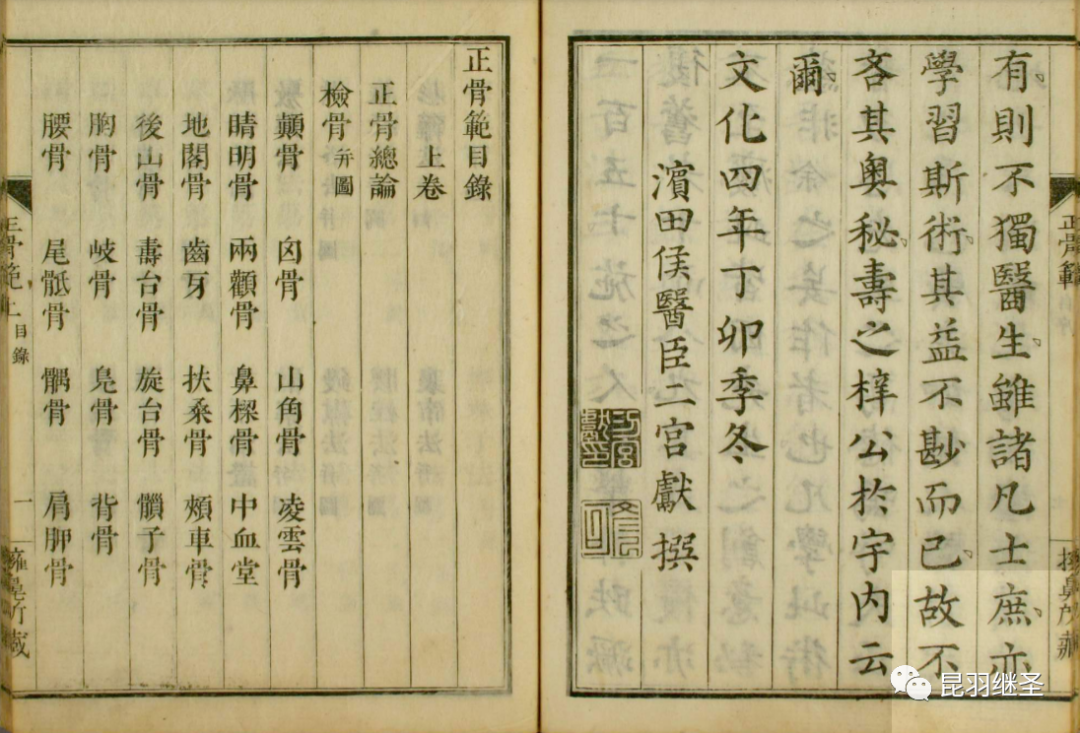 有則不獨醫生雖諸凡士庶亦
學習斯術其益不尠而已故不
吝其奧秘壽之梓公於宇内云
爾
文化四年丁卯季冬
濱田侯醫臣二宮獻撰
正骨範
正骨範目錄
上卷
正骨總論
檢骨并圖
顛骨 囟骨 山角骨 凌雲骨
睛明骨 兩顴骨 鼻梁骨 中血堂
地閣骨 齒牙 扶桑骨 頰車骨
後山骨 壽台骨 旋台骨 髑子骨
胸骨 岐骨 鳧骨 背骨
腰骨 尾骶骨 髃骨 肩胛骨
正骨範上 目錄 一
昆羽继圣